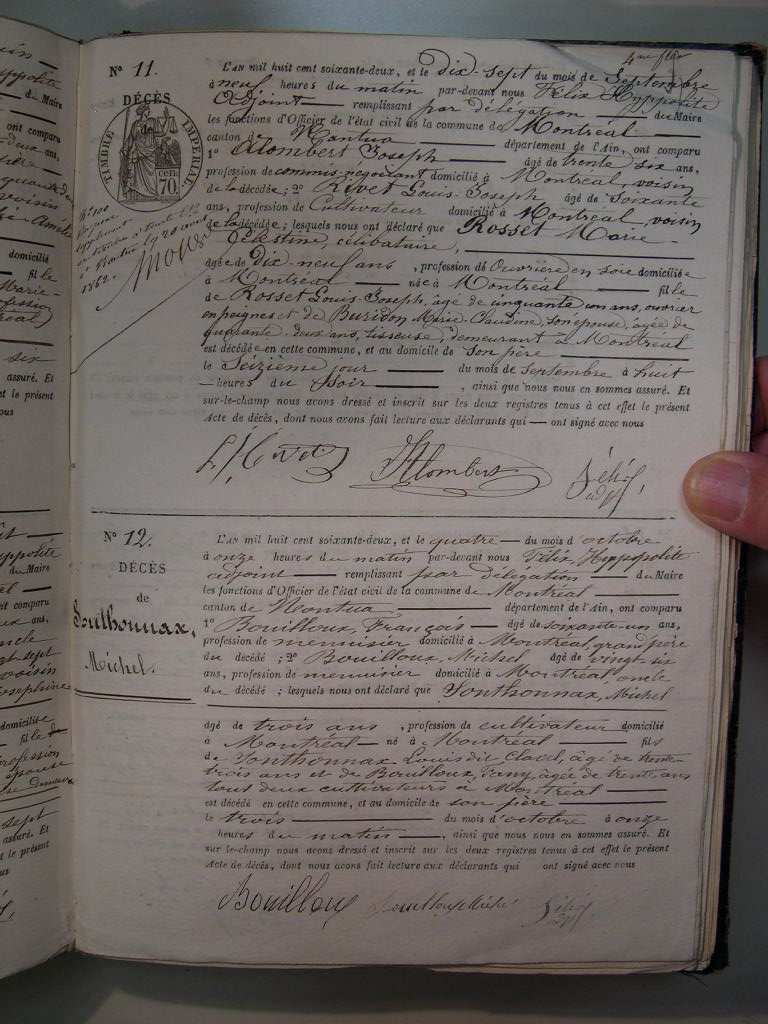 4me flet
Nº 11.
DÉCÈS
de
TIMBRE IMPÉRIAL
70 cen.
1862.
L'AN mil huit cent soixante-deux, et le dix-sept du mois de Septembre
à neuf heures du matin par-devant nous Félix Hyppolite
Adjoint remplissant par délégation du Maire
les fonctions d'Officier de l'état civil de la commune de Montréal
canton de Nantua département de l'Ain, ont comparu
1º Alombert Joseph âgé de trente six ans,
profession de commis-négociant domicilié à Montréal, voisin
de la décédée; 2º Rivet Louis-Joseph âgé de soixante
ans, profession de Cultivateur domicilié à Montréal voisin
de la décédée; lesquels nous ont déclaré que Rosset Marie-
Célestine, célibataire,
âgée de Dix-neuf ans, profession de Ouvrière en soie domiciliée
à Montréal née à Montréal fille
de Rosset Louis-Joseph, âgé de cinquante un ans, ouvrier
en peignes et de Buridon Marie-Claudine, son épouse, âgée de
quarante-deux ans, tisseuse, demeurant à Montréal
est décédée en cette commune, et au domicile de son père
le Seizième jour du mois de septembre à huit
heures du soir, ainsi que nous nous en sommes assuré. Et
sur-le-champ nous avons dressé et inscrit sur les deux registres tenus à cet effet le présent
Acte de décès, dont nous avons fait lecture aux déclarants qui ont signé avec nous
Alombert Félix adjt.
Nº 12.
DÉCÈS
de
Sonthonnax,
Michel.
L'AN mil huit cent soixante-deux, et le quatre du mois d'octobre
à onze heures du matin par-devant nous Félix, Hyppolite
adjoint remplissant par délégation du Maire
les fonctions d'Officier de l'état civil de la commune de Montréal
canton de Nantua département de l'Ain, ont comparu
1º Bouilloux, François âgé de soixante-un ans,
profession de menuisier domicilié à Montréal, grand père
du décédé; 2º Bouilloux, Michel âgé de vingt six
ans, profession de menuisier domicilié à Montréal oncle
du décédé; lesquels nous ont déclaré que Sonthonnax, Michel
âgé de trois ans, profession de cultivateur domicilié
à Montréal né à Montréal fils
de Sonthonnax Louis dit Clavel, âgé de trente-
trois ans et de Bouilloux, Fany, âgée de trente ans
tous deux cultivateurs à Montréal
est décédé en cette commune, et au domicile de son père
le trois du mois d'octobre à onze
heures du matin, ainsi que nous nous en sommes assuré. Et
sur-le-champ nous avons dressé et inscrit sur les deux registres tenus à cet effet le présent
Acte de décès, dont nous avons fait lecture aux déclarants qui ont signé avec nous
Bouilloux Bouilloux Michel Félix adjt.